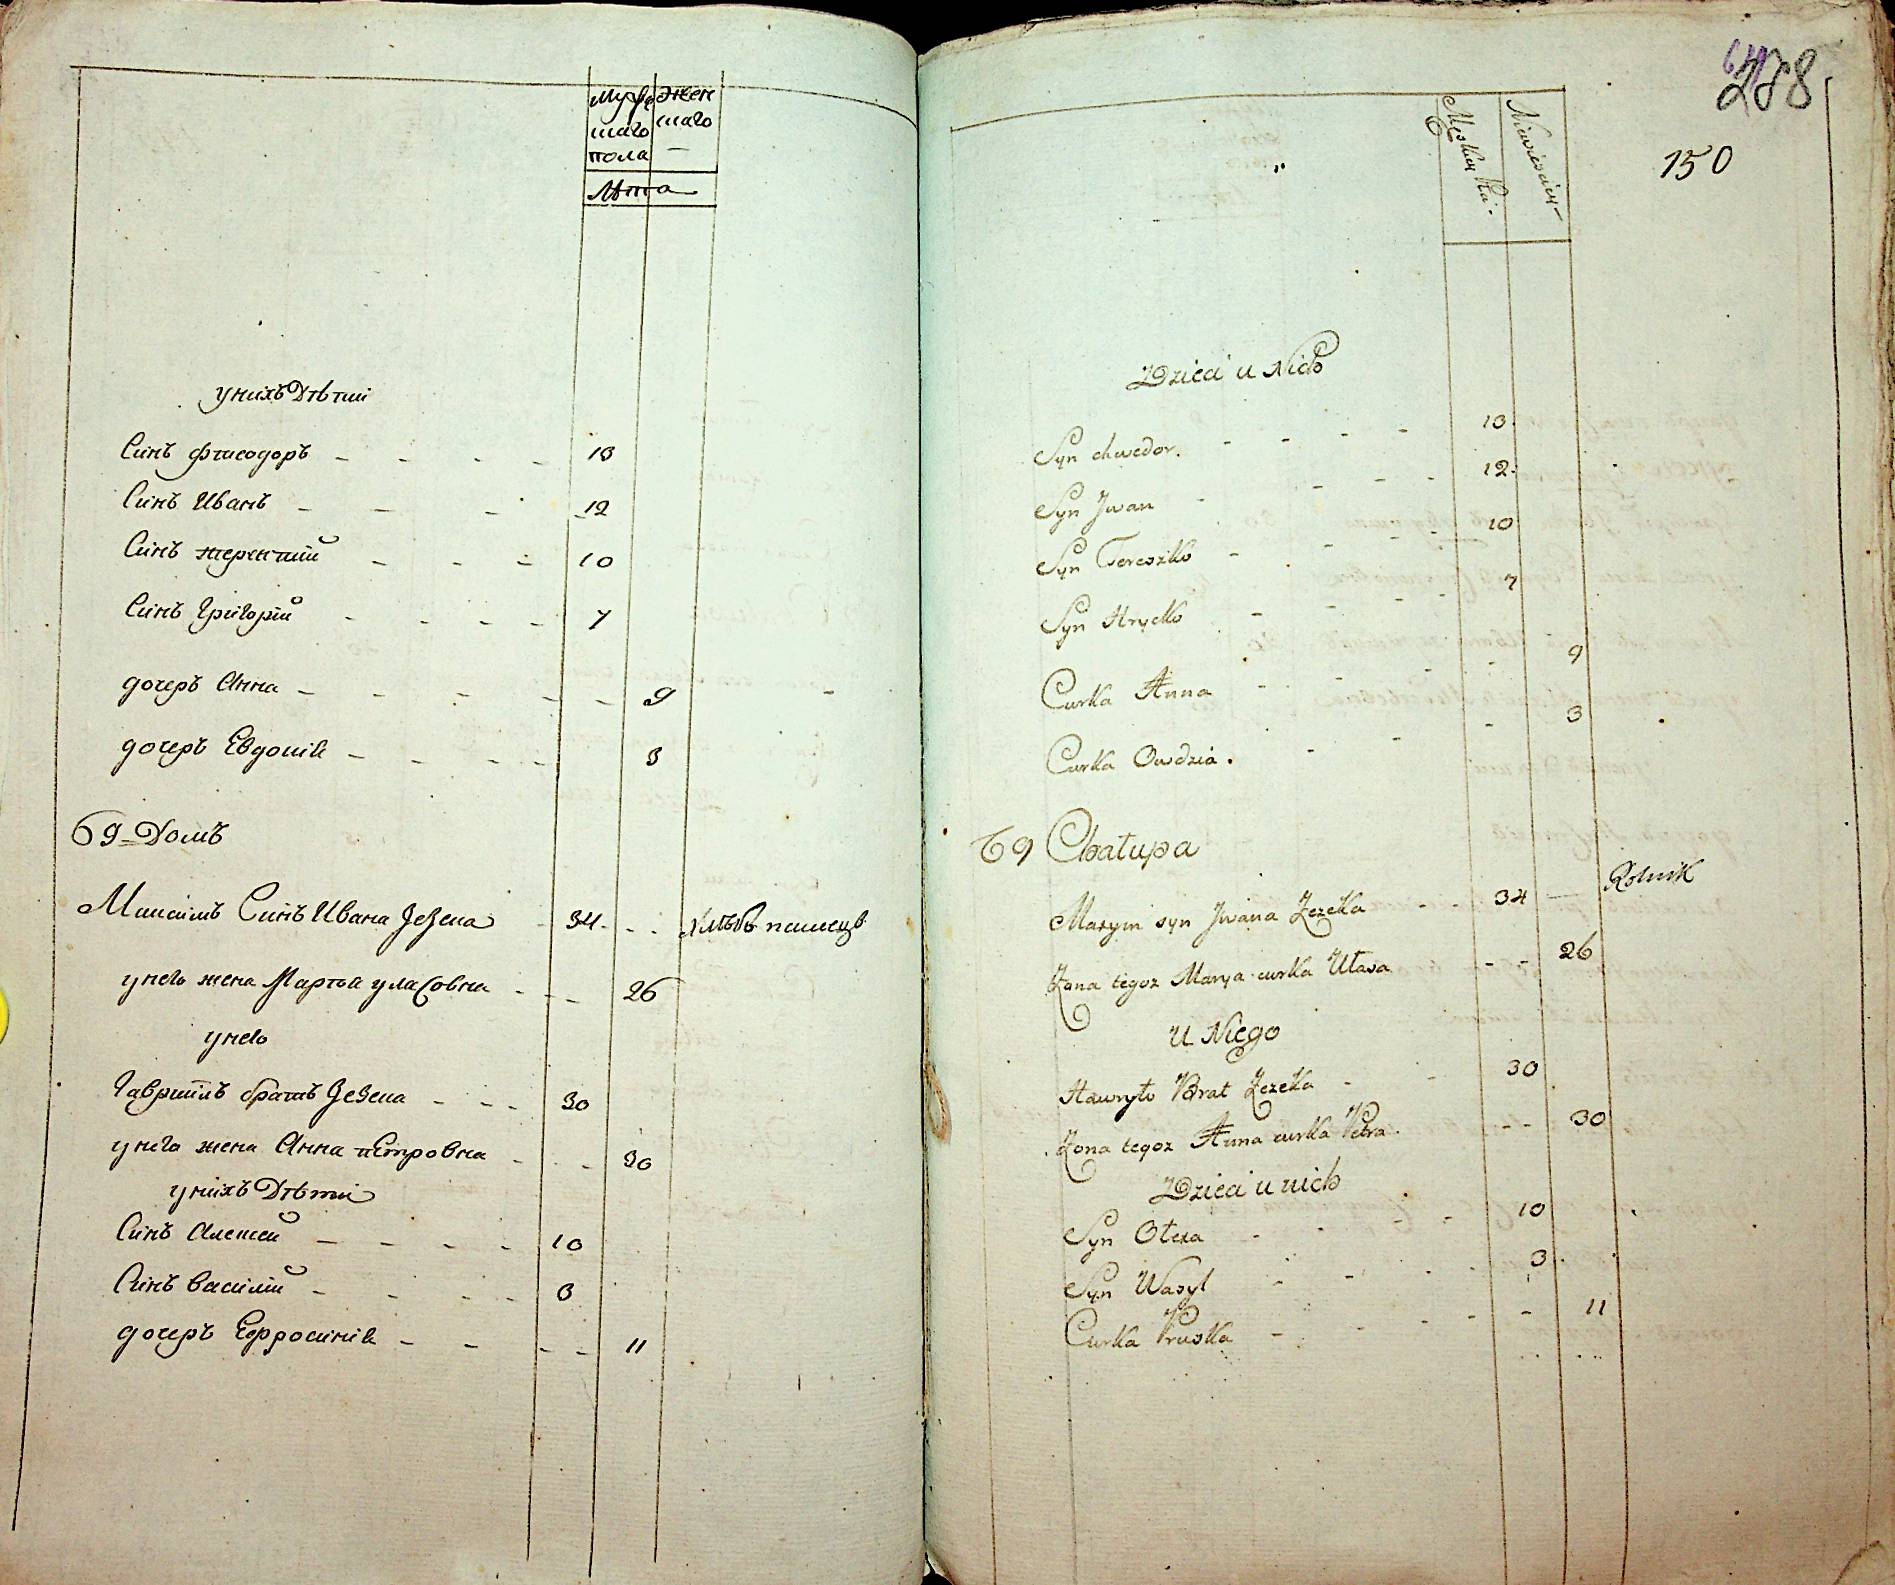 Муже жен
шаго шаго
пола
Лѣта
унихъ Дѣтии
Синъ Фтеодоръ 13
Синъ Иванъ 12
Синъ терентий 10
Синъ Григорий 7
дочеръ Анна 9
дочеръ Евдокия 3
69 Домъ
Максимъ Синъ Ивана Зезека 34 Хлѣбопашецъ
унего жена Марта уласовна 26
унего
Гавриилъ братъ Зезека 30
унего жена Анна петровна 30
унихъ Дѣти
Синъ Алексей 10
Синъ Василий 3
дочеръ Ефросиния 11
288
150
Męskiey Płci
Niewiesciey
Dzieci u Nich
Syn Chwedor. 13
Syn Jwan 12
Syn Tereszko 10
Syn Hrycko 7
Curka Anna 9
Curka Owdzia. 3
69 Chałupa
Maxym syn Jwana Zezeka 34 Rolnik
Zona tegoz Marya curka Ułasa 26
U Niego
Hawryło Brat Zezeka 30
Zona tegoz Anna curka Petra 30
Dzieci u nich
Syn Ołexa 10
Syn Wasyl 3
Curka Pruska 11